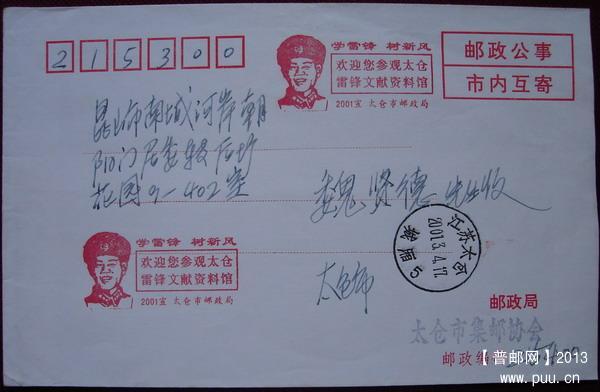 215300
学雷锋 树新风
欢迎您参观太仓
雷锋文献资料馆
2001宣 太仓市邮政局
邮政公事
市内互寄
昆山市南城河岸朝
阳门居委
花园9-402室
魏贤德 先生收
学雷锋 树新风
欢迎您参观太仓
雷锋文献资料馆
2001宣 太仓市邮政局
江苏太仓
2001.3.4.17
太仓市
邮政局
太仓市集邮协会
邮政编
【普邮网】2013
www.puu.cn